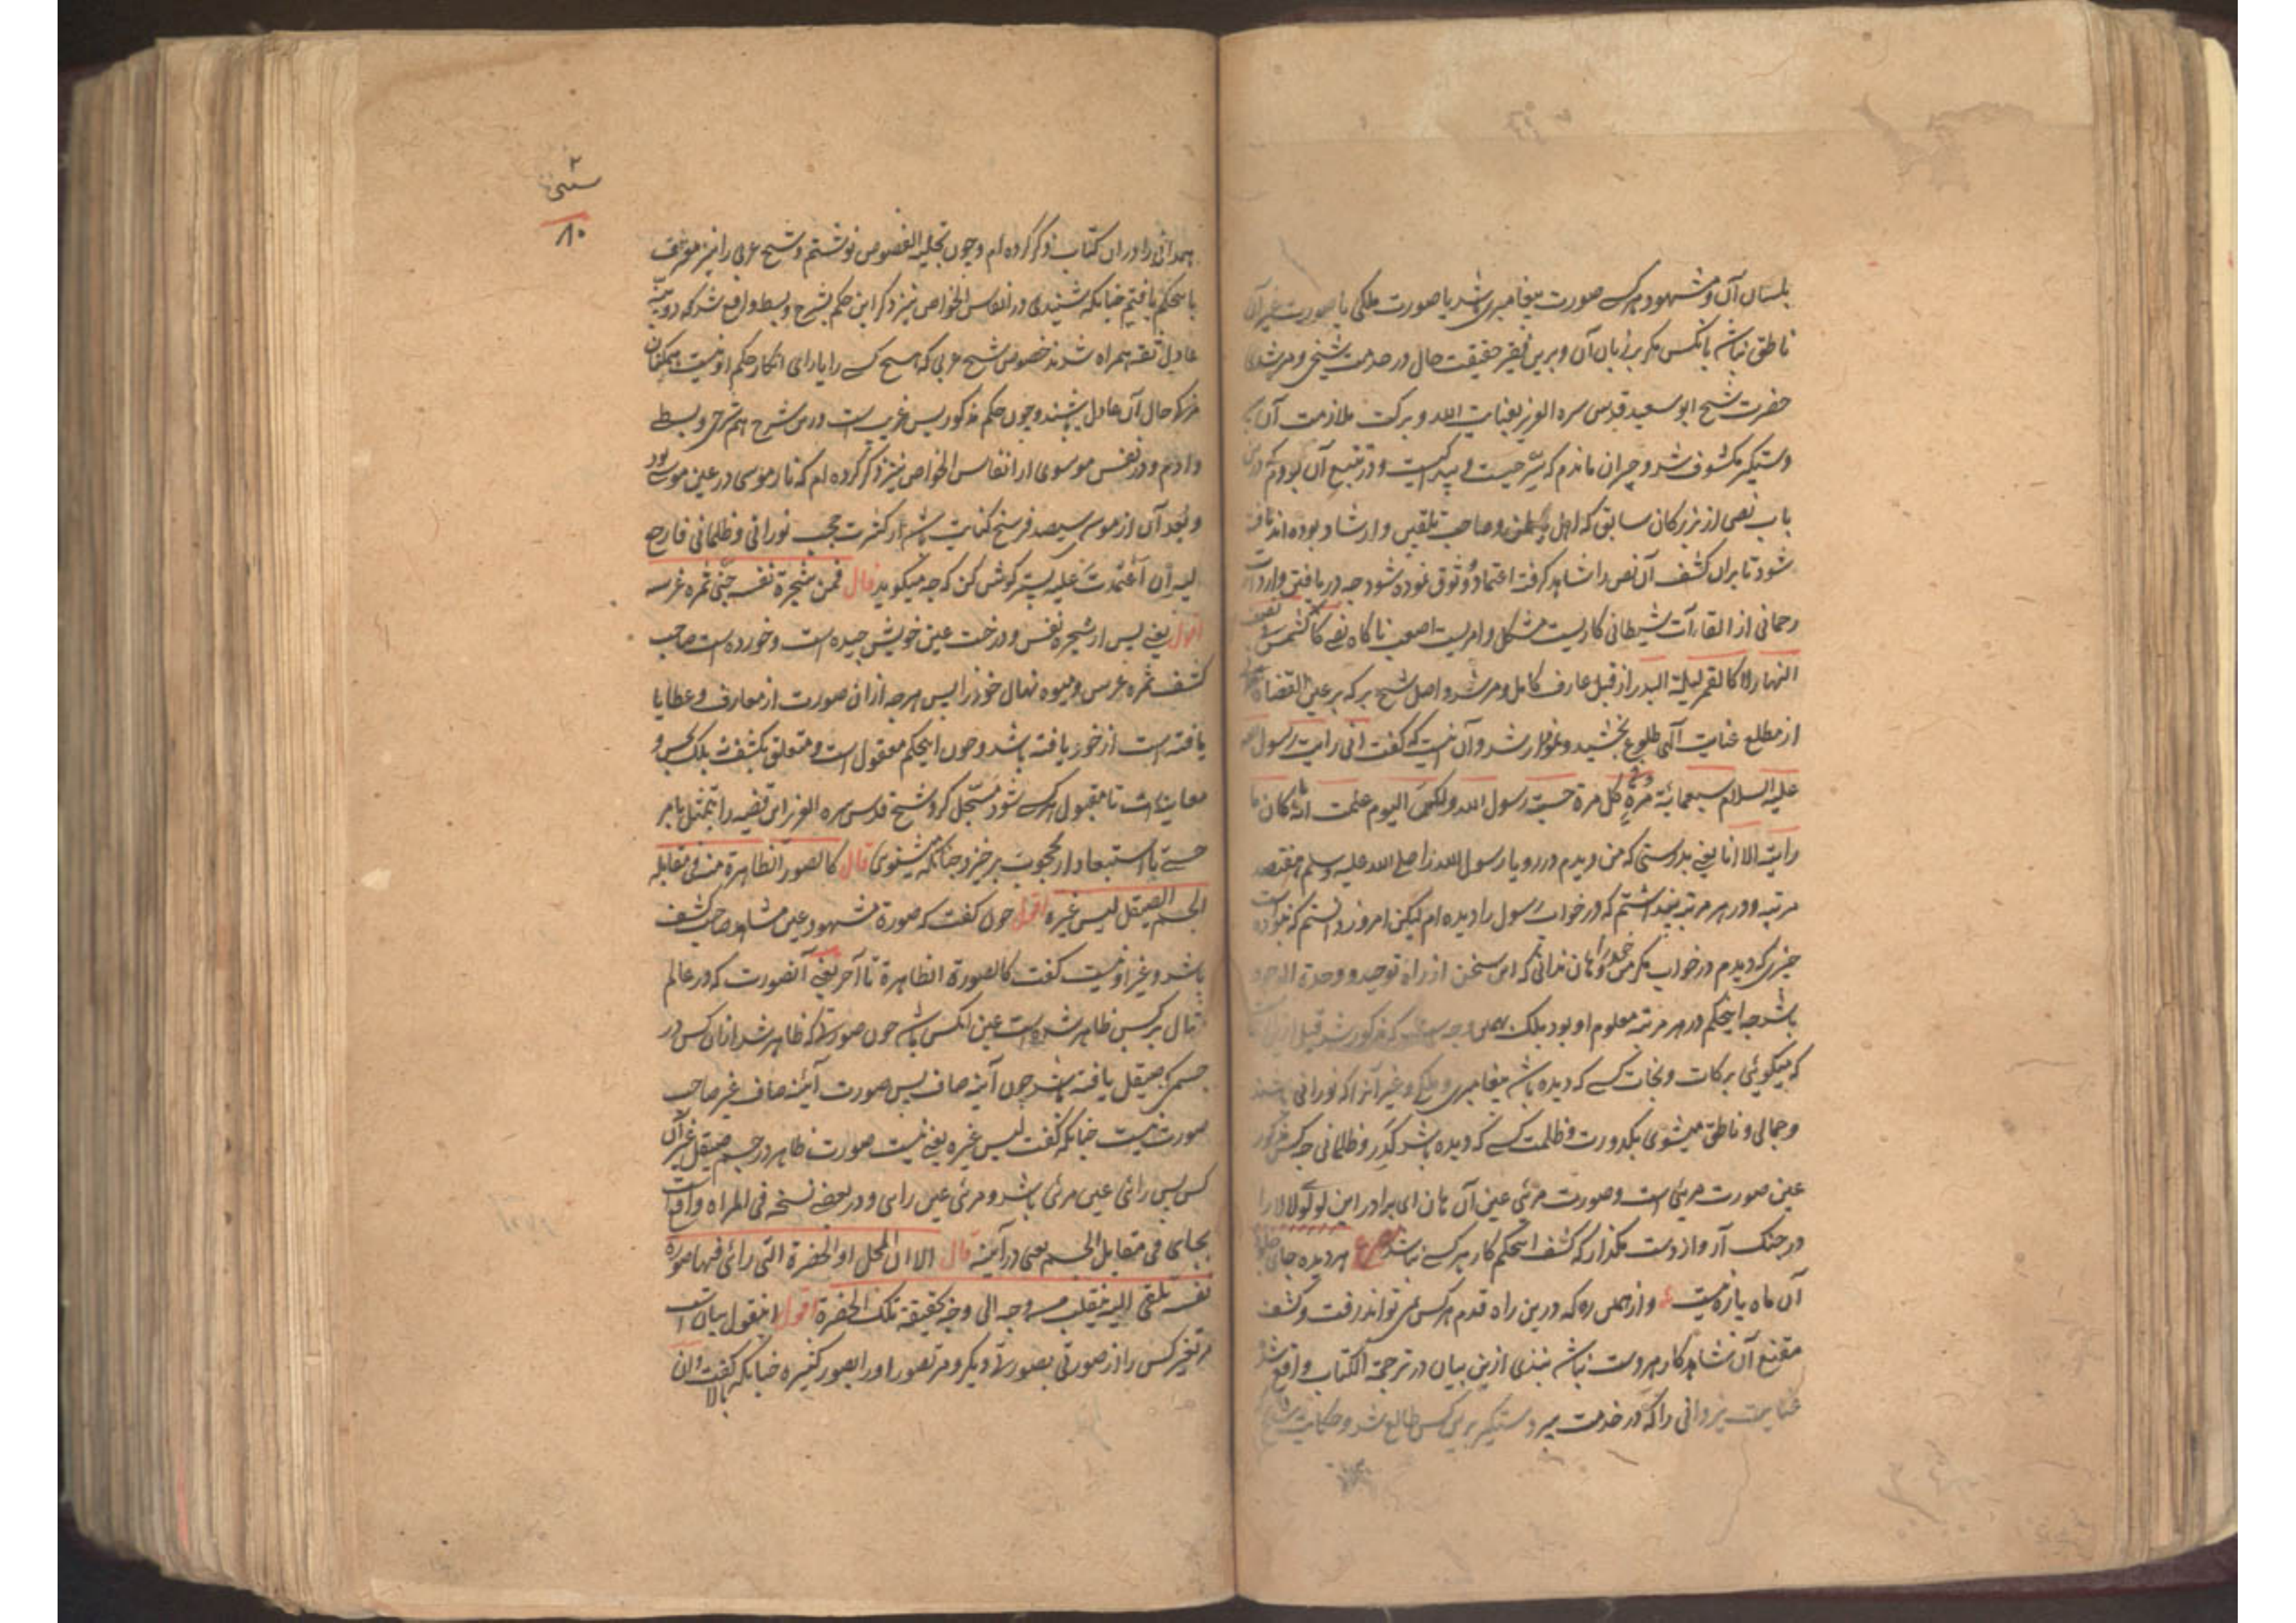 بلسان آن و مشهود هر کسی صورت پیغامبری باشد یا صورت ملکی یا صورت غیر آن
ناطق نباشد بآنکس مگر بزبان آن و برین فقیر حقیقت حال در خدمت شیخی و مرشدی
حضرت شیخ ابو سعید قدس سره العزیز بعنایت الله و برکت ملازمت آن
دستگیر مکشوف شد و حیران ماندم که سر چیست و پدید کیست و در تتبع آن بودم که درین
باب نصی از بزرکان سابق که اهل و صاحب تلقین و ارشاد بوده اند یافته
شود تا بران کشف آن نص را شاهد کرفته اعتماد و وثوق نموده شود چه دریافتن واردات
رحمانی از القاآت شیطانی کاریست مشکل و امریست اصعب ناکاه نصی کالشمس فی نصف
النهار لا کالقمر لیلة البدر از قبل عارف کامل و مرشد واصل شیخ برکه بر عین القضاة
از مطلع عنایت آلهی طلوع بخشید و نمودار شد و آن نیست که کفت انی رایت رسول الله
علیه السلام سبعمائة مرة وفی کل مرة حسبت رسول الله ولکنی الیوم علمت انه ما کان ما
رایت الا انا یعنی بدرستی که من دیدم در رویا رسول الله را صلی الله علیه وسلم هفتصد
مرتبه و در هر مرتبه پنداشتم که در خواب رسول را دیده ام لیکن امروز دانستم که نبوده است
چیزی که دیدم در خواب مگر من خود را هان ندانی که این سخن از راه توحید و وحدة الوجود
باشد چه اینحکم در هر مرتبه معلوم او بود بلکه بهمین وجه که مذکور شد قبل ازین
که میکوئی برکات و نجات کسی که دیده باشد پیغامبری و ملکی و غیر آنرا که نورانی باشند
و جمالی و ناطق میشوی بکدورت و ظلمت کسی که دیده باشد کدر و ظلمانی چه کس مذکور
عین صورت مرئی است و صورت مرئی عین آن هان ای برادر این لولوی لالا را
در چنک آر و از دست مگذار که کشف اینحکم کار هر کسی نباشد مصرع هر دیده جای جلوهٔ
آن ماه پاره نیست و از همین ره که درین راه قدم هر کس نمی تواند رفت و کشف
مقنع آن شاهد کار هر دست نباشد نبذی ازین بیان در ترجمة الکتاب واقع شد
عنایت یزدانی را که در خدمت پیر دستگیر برین کس طالع شد و حکایت شیخ
۲
۸۰
همدانی را در آن کتاب ذکر کرده ام و چون تجلیه الفصوص نوشتم و شیخ عربی را نیز معترف
باینحکم یافتم چنانکه شنیدی در انفاس الخواص نیز ذکر این حکم بشرح و بسط واقع شد که دو بینهٔ
عادل ثقه همراه شدند خصوص شیخ عربی که هیچ کس را یارای انکار حکم او نیست همکنان
مزکی حال آن عادل باشند و چون حکم مذکور بس غریب است درین شرح هم شرحی و بسطی
دادم و در نفس موسوی از انفاس الخواص نیز ذکر کرده ام که نار موسی در عین موسی بود
و بعد آن از موسی سیصد فرسخ کنایت باشد از کثرت حجب نورانی و ظلمانی فارجع
الیه ان اعتمدت علیه پستر کوش کن که چه میکوید قال فمن شجرة نفسه جنی ثمره غرسه
اقول یعنی پس از شجره نفس و درخت عین خویش چیده است و خورده است صاحب
کشف ثمره غرس و میوه نهال خود را پس هر چه از ان صورت از معارف و عطایا
یافته است از خود یافته باشد و چون اینحکم معقول است و متعلق بکشف بلک بحس و
معاینه است تا مقبول هر کسی شود مسجل کرد شیخ قدس سره العزیز این قضیه را بتمثیل بامر
حسی تا استبعاد از محجوب برخیزد چنانکه میشنوی قال کالصورة الظاهرة منه فی مقابلة
الجسم الصیقل لیس غیره اقول چون کفت که صورة مشهود عین مشاهد صاحب کشف
باشد و غیر او نیست کفت کالصورة الظاهرة تا آخر یعنی آنصورت که در عالم
مثال بر کس ظاهر شده است عین آنکس باشد چون صورتی که ظاهر شد از ان کس در
جسمی که صیقل یافته باشد چون آینهٔ صاف پس صورت آئینهٔ صاف غیر صاحب
صورت نیست چنانکه کفت لیس غیره یعنی نیست صورت ظاهر در جسم صیقل غیر آن
کس پس رائی عین مرئی باشد و مرئی عین رائی و در بعضی نسخه فی المراة واقع است
بجای فی مقابل الجسم یعنی در آئینه قال الا ان المحل او الحضرة التی رائی فیها صورة
نفسه تلقی الیه فینقلب من وجه الی وجه لحقیقة تلک الحضرة اقول اینقول بیان است
مر تغیر کس را از صورتی بصورتی دیگر و مر تصور او را بصور کثیره چنانکه کفت وان
بالا